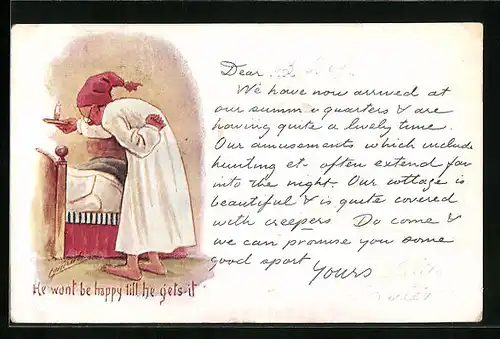 Dear
We have now arrived at
our summer quarters & are
having quite a lively time.
Our amusements which include
hunting et- often extend far
into the night. Our cottage is
beautiful & is quite covered
with creepers Do come &
we can promise you some
good sport
Yours
He wont be happy till he gets it